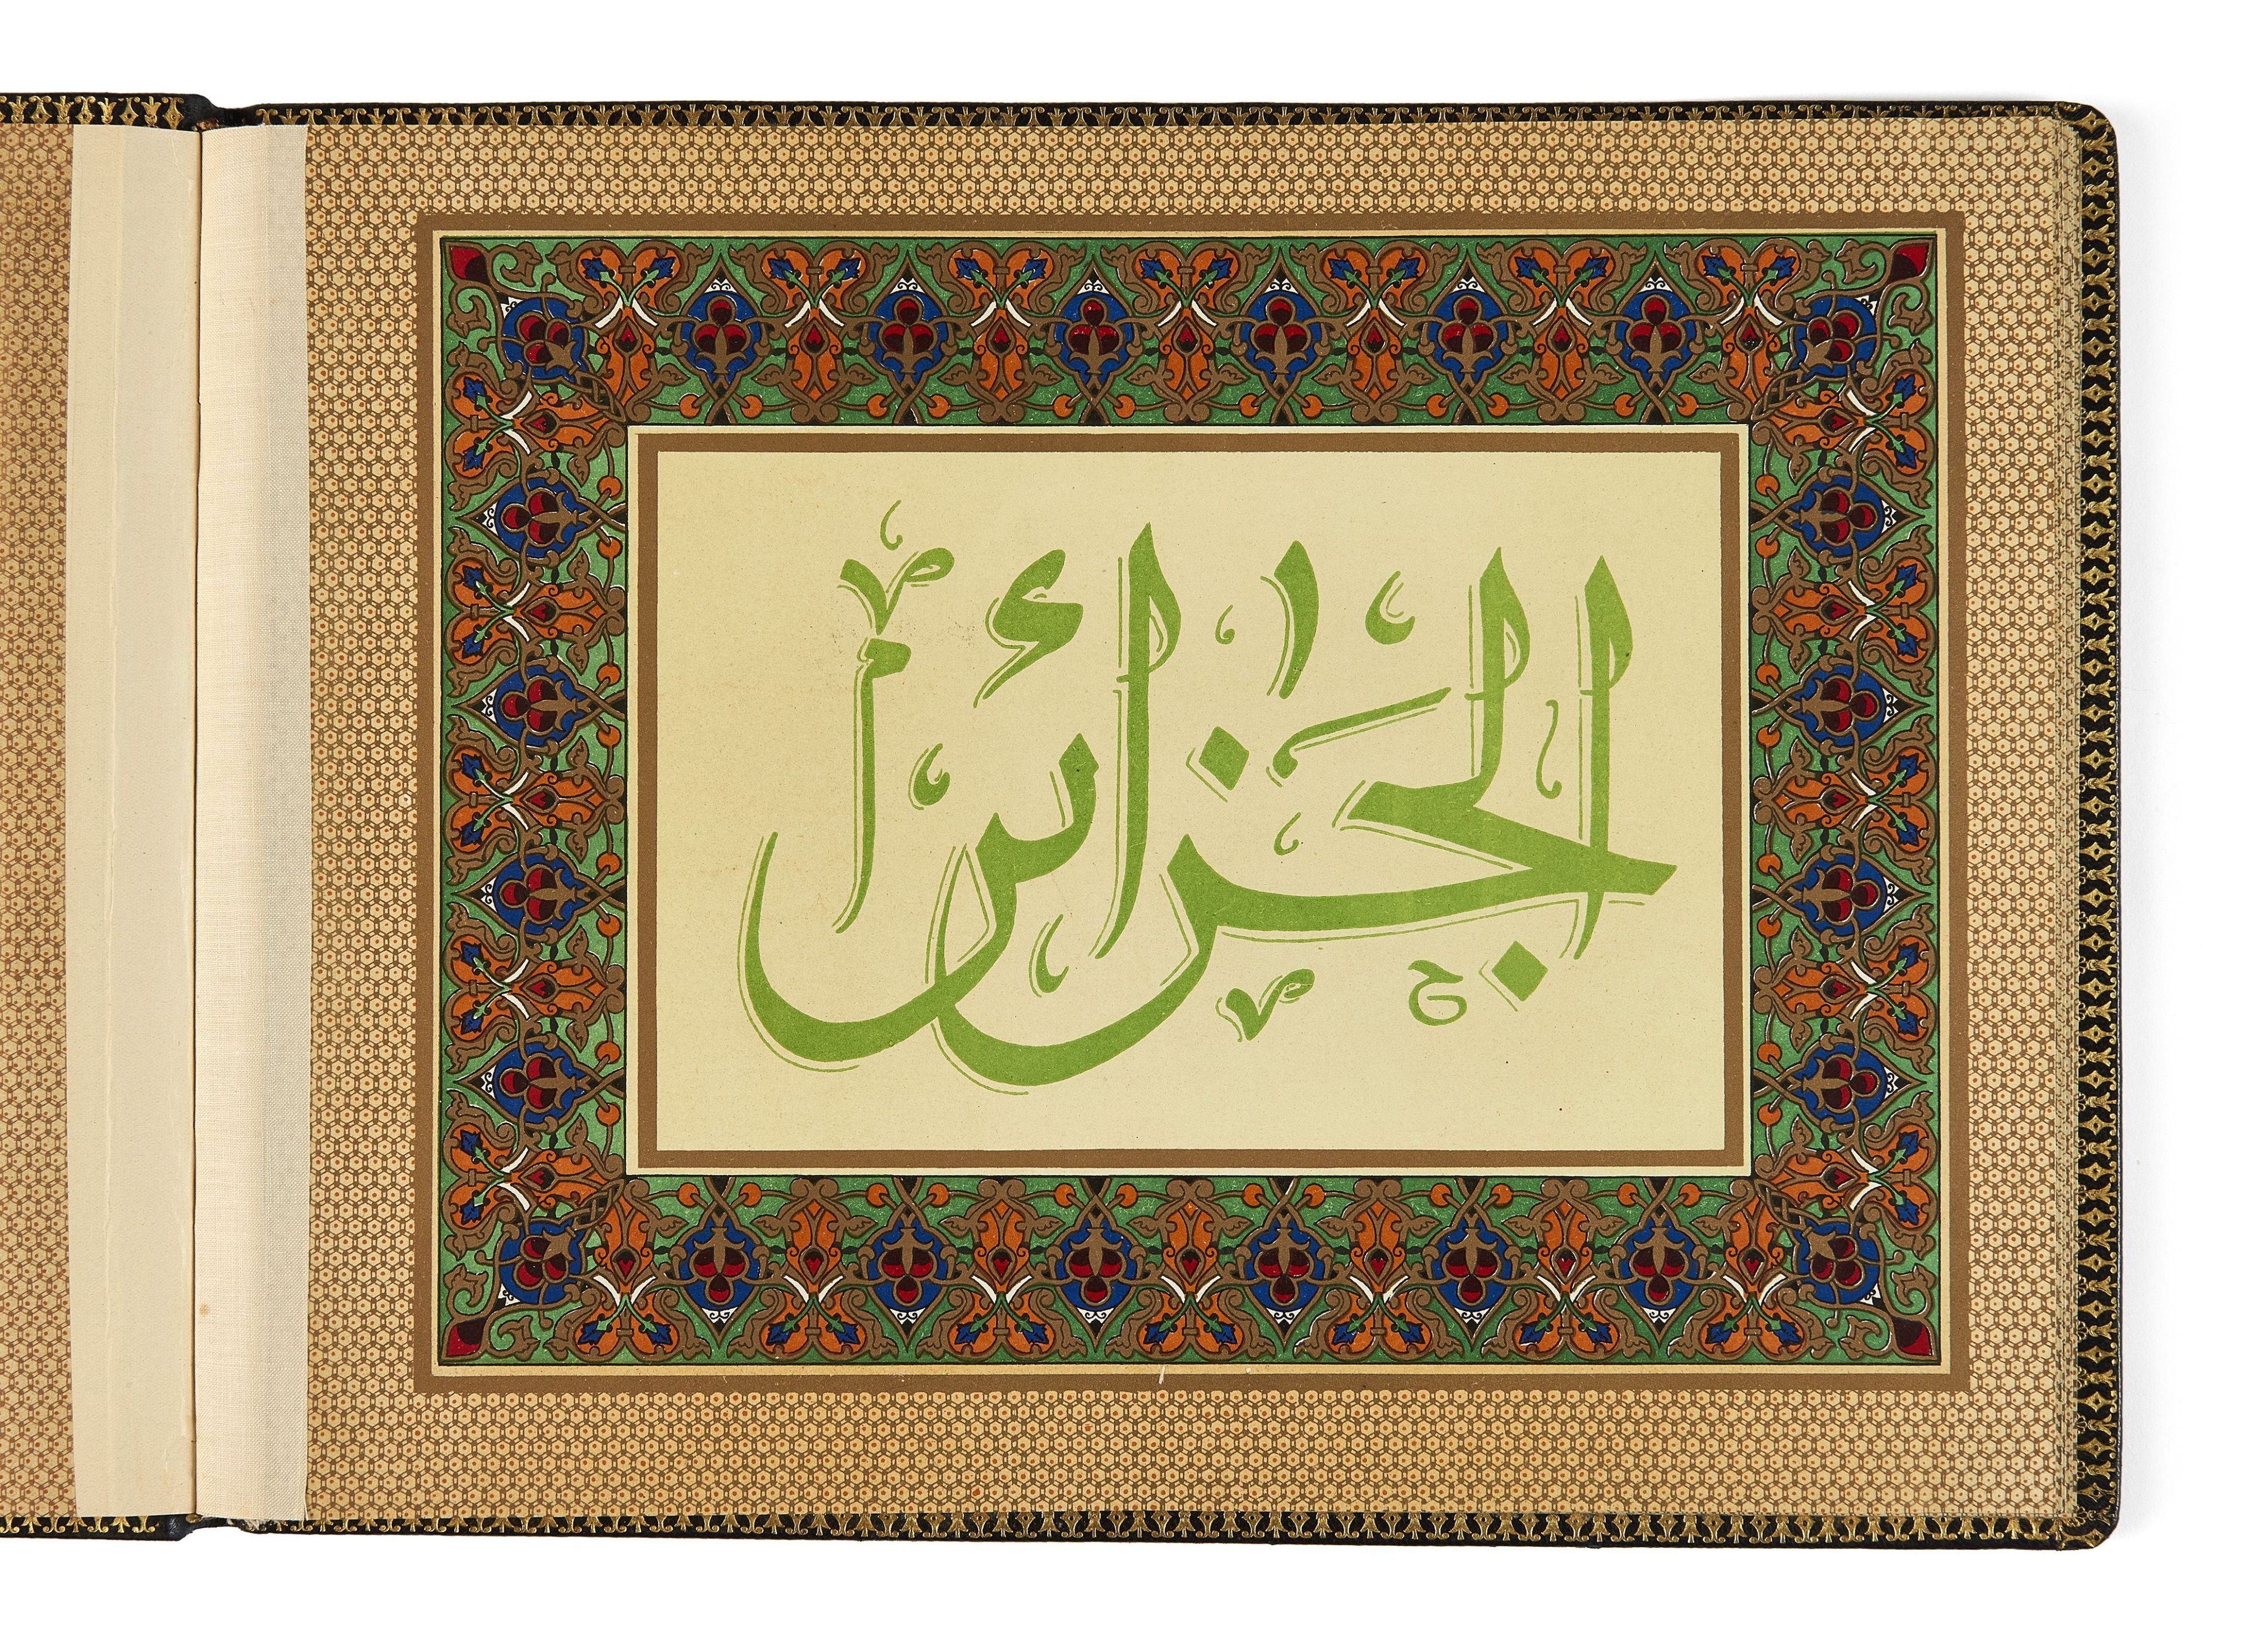 الجزائر